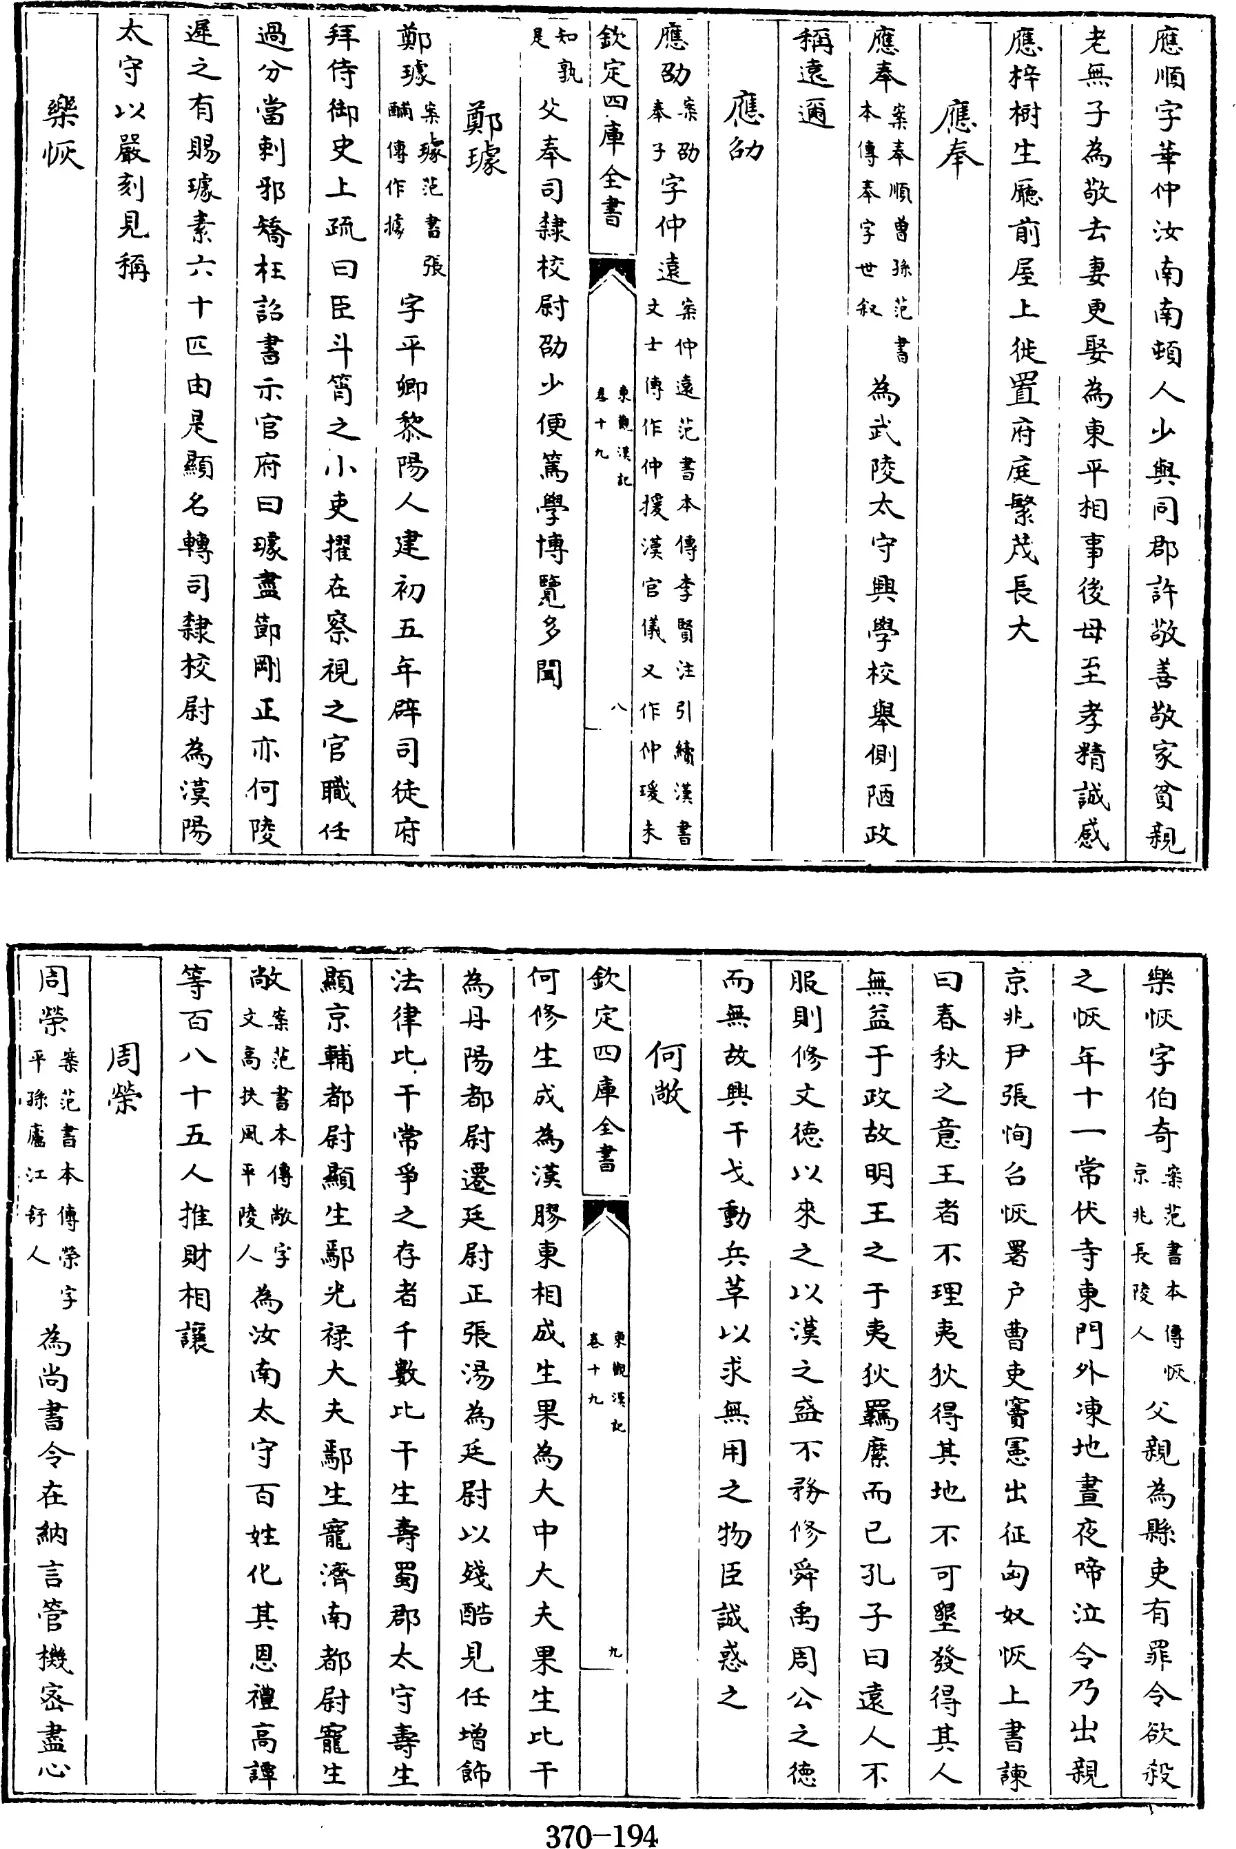 應順字華仲汝南南頓人少與同郡許敬善敬家貧親
老無子為敬去妻更娶為東平相事後母至孝精誠感
應梓樹生廳前屋上徙置府庭繁茂長大
應奉
應奉案奉順曾孫范書本傳奉字世叔為武陵太守興學校舉側陋政
稱遠邇
應劭
應劭案劭奉子字仲遠案仲遠范書本傳李賢注引續漢書文士傳作仲援漢官儀又作仲瑗未
欽定四庫全書 東觀漢記卷十九 八
知孰是父奉司隸校尉劭少便篤學博覽多聞
鄭璩
鄭璩案璩范書張酺傳作據字平卿黎陽人建初五年辟司徒府
拜侍御史上疏曰臣斗筲之小吏擢在察視之官職任
過分當刺邪矯枉詔書示官府曰璩盡節剛正亦何陵
遲之有賜璩素六十匹由是顯名轉司隸校尉為漢陽
太守以嚴刻見稱
樂恢
樂恢字伯奇案范書本傳恢京兆長陵人父親為縣吏有罪令欲殺
之恢年十一常伏寺東門外凍地晝夜啼泣令乃出親
京兆尹張恂召恢署户曹吏竇憲出征匈奴恢上書諫
曰春秋之意王者不理夷狄得其地不可墾發得其人
無益于政故明王之于夷狄羈縻而已孔子曰遠人不
服則修文德以來之以漢之盛不務修舜禹周公之德
而無故興干戈動兵革以求無用之物臣誠惑之
何敞
欽定四庫全書 東觀漢記卷十九 九
何修生成為漢膠東相成生果為大中大夫果生比干
為丹陽都尉遷廷尉正張湯為廷尉以殘酷見任增飾
法律比干常爭之存者千數比干生壽蜀郡太守壽生
顯京輔都尉顯生鄢光禄大夫鄢生寵濟南都尉寵生
敞案范書本傳敞字文高扶風平陵人為汝南太守百姓化其恩禮高譚
等百八十五人推財相讓
周榮
周榮案范書本傳榮字平孫廬江舒人為尚書令在納言管機密盡心
370-194